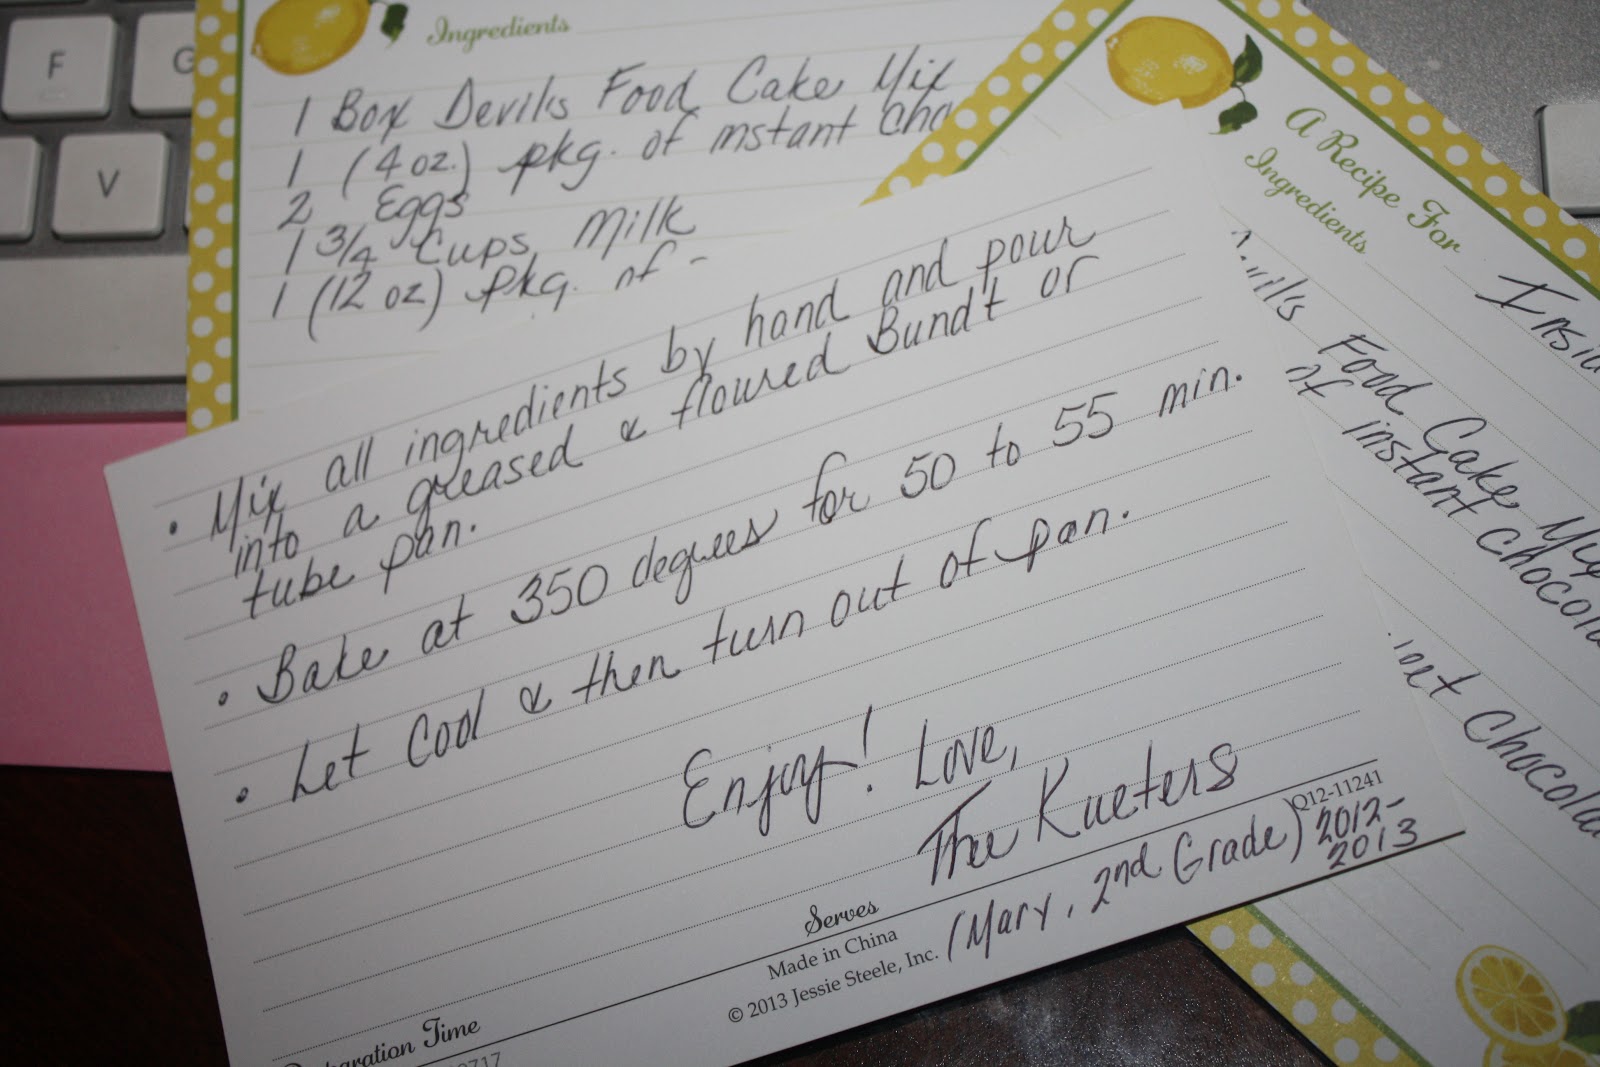 F
G
V
Ingredients
1 Box Devils Food Cake Mix
1 (4 oz.) pkg. of instant cho
2 Eggs
1 3/4 Cups Milk
1 (12 oz) Pkg. of
A Recipe For
Ingredients
Food Cake
of instant Chocola
Chocola
• Mix all ingredients by hand and pour
into a greased & floured Bundt or
tube pan.
• Bake at 350 degrees for 50 to 55 min.
• Let Cool & then turn out of pan.
Enjoy! Love,
The Kueters
(Mary, 2nd Grade) 2012-
2013
Q12-11241
Serves
Made in China
© 2013 Jessie Steele, Inc.
Time